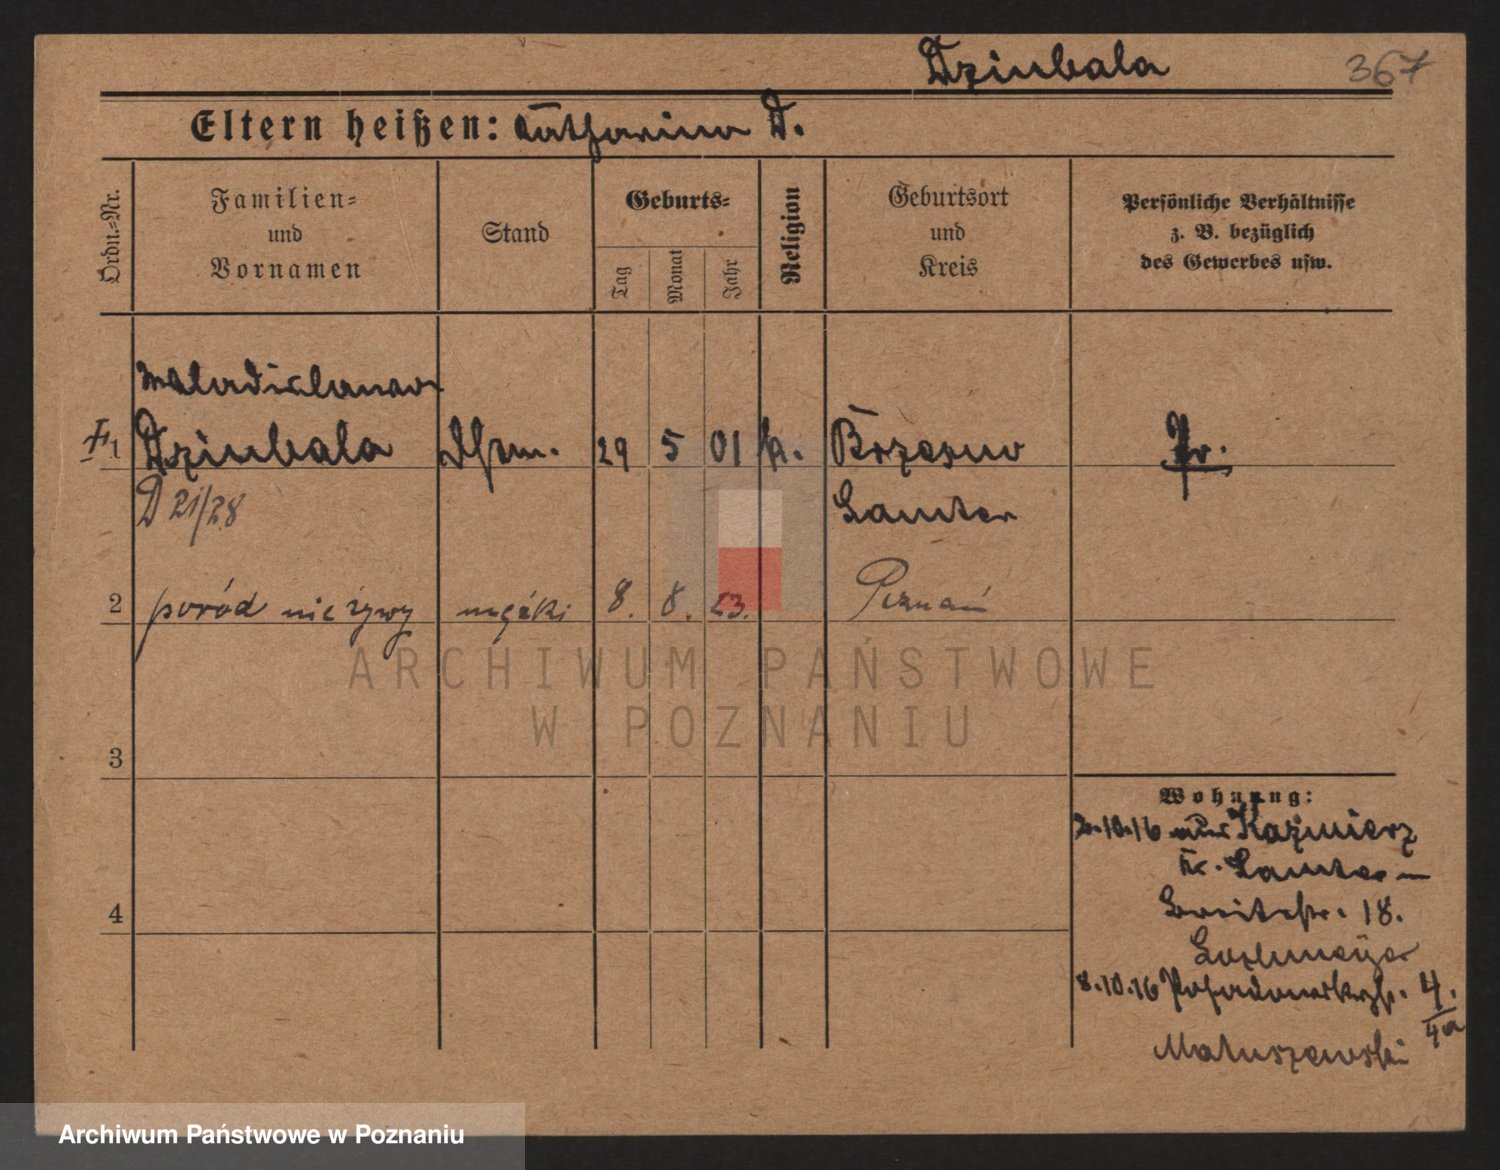 Dziubala 367
Eltern heißen: Catharina D.
Ordn.-Nr.
Familien-
und
Vornamen
Stand
Geburts-
Tag
Monat
Jahr
Religion
Geburtsort
und
Kreis
Persönliche Verhältnisse
z. B. bezüglich
des Gewerbes usw.
Wladislawa
1 Dziubala 29 5 01 k. Brzezno Pr.
D 21/28 Samter
2 poród nie żywy męski 8. 8. 23. Poznań
3
4
Wohnung:
2.10.16 aus Kazmierz
Kr. Samter –
Breitestr. 18.
8.10.16 Posadowskystr. 4.
4a
Matuszewski
ARCHIWUM PAŃSTWOWE
W POZNANIU
Archiwum Państwowe w Poznaniu